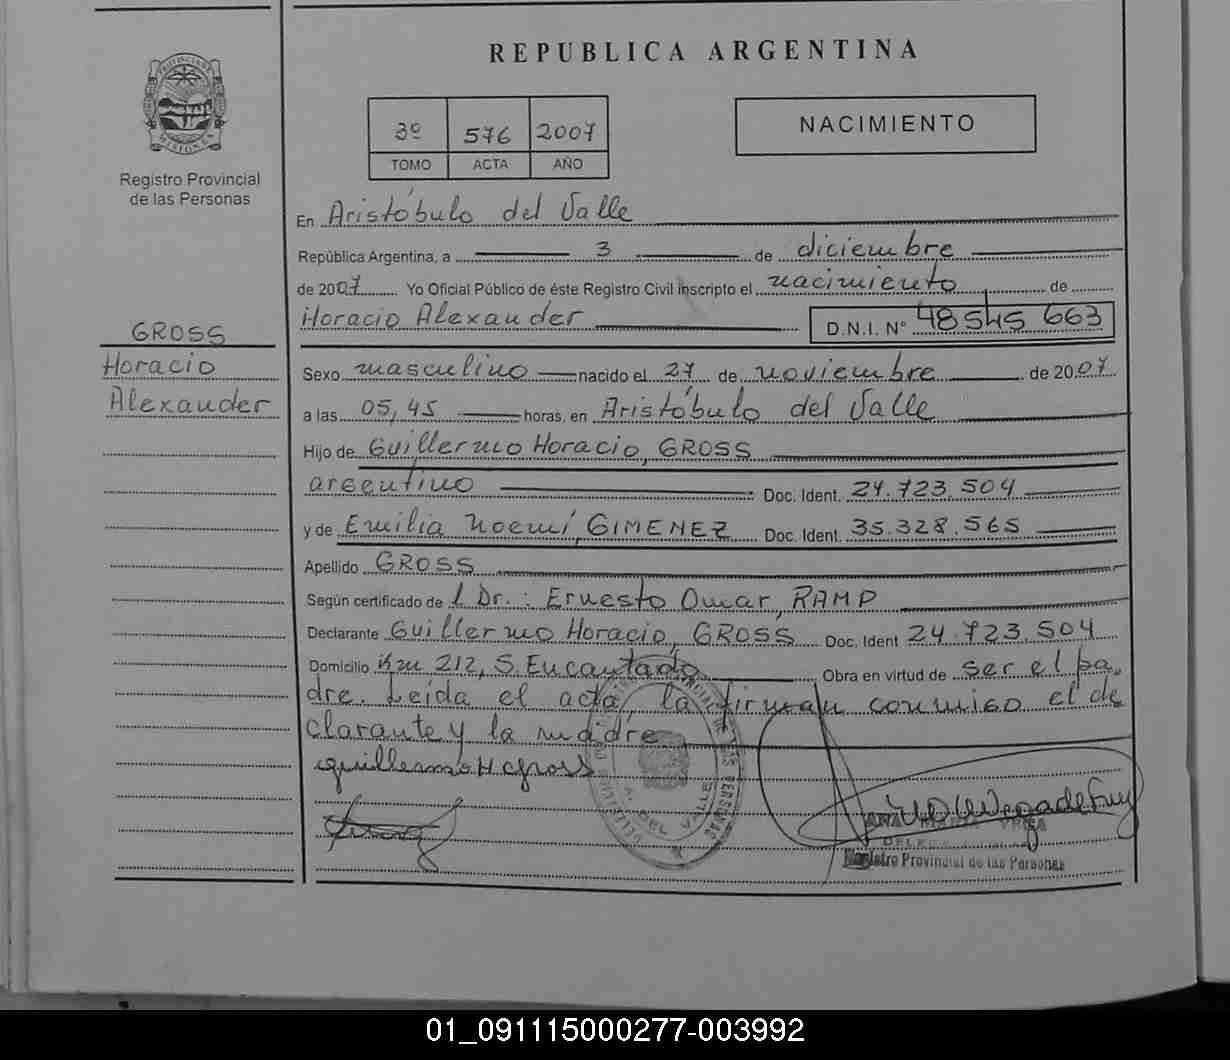 REPUBLICA ARGENTINA
PROVINCIA DE MISIONES
3º 576 2007
TOMO ACTA AÑO
NACIMIENTO
Registro Provincial
de las Personas
En Aristóbulo del Valle
República Argentina, a 3 de diciembre
de 2007 Yo Oficial Público de éste Registro Civil inscripto el nacimiento de
Horacio Alexander D.N.I. Nº 48545 663
GROSS
Horacio
Alexander
Sexo masculino nacido el 27 de noviembre de 2007
a las 05,45 horas, en Aristóbulo del Valle
Hijo de Guillermo Horacio, GROSS
argentino Doc. Ident. 24.723.504
y de Emilia Noemí, GIMENEZ Doc. Ident. 35.328.565
Apellido GROSS
Según certificado de l Dr.: Ernesto Omar, RAMP
Declarante Guillermo Horacio, GROSS Doc. Ident 24.723.504
Domicilio Km 212, S. Encantado Obra en virtud de ser el pa
dre. Leída el acta, la firman conmigo el de
clarante y la madre
Guillermo H Gross
DEL VALLE
Registro Provincial de las Personas
01_091115000277-003992